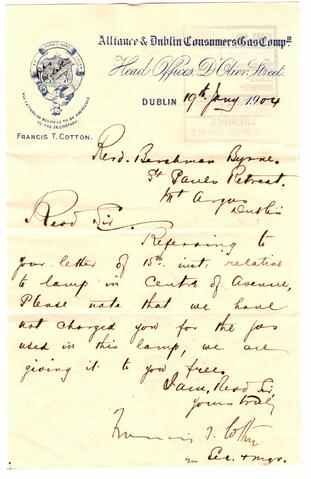 Alliance & Dublin Consumers Gas Comp.y
Head Offices, D'Olier Street.
DUBLIN 19th Jany 1904
ALL LETTERS ON BUSINESS TO BE ADDRESSED
TO THE SECRETARY.
FRANCIS T. COTTON.
Revd. Berchman Byrne,
St Pauls Retreat.
Mt Argus
Dublin
Revd Sir,
Referring to
your letter of 15th inst: relative
to lamp in Centre of Avenue,
Please note that we have
not charged you for the gas
used in this lamp, we are
giving it to you free.
I am, Revd Sir,
yours truly
Francis T. Cotton
Sec. & Mgr.